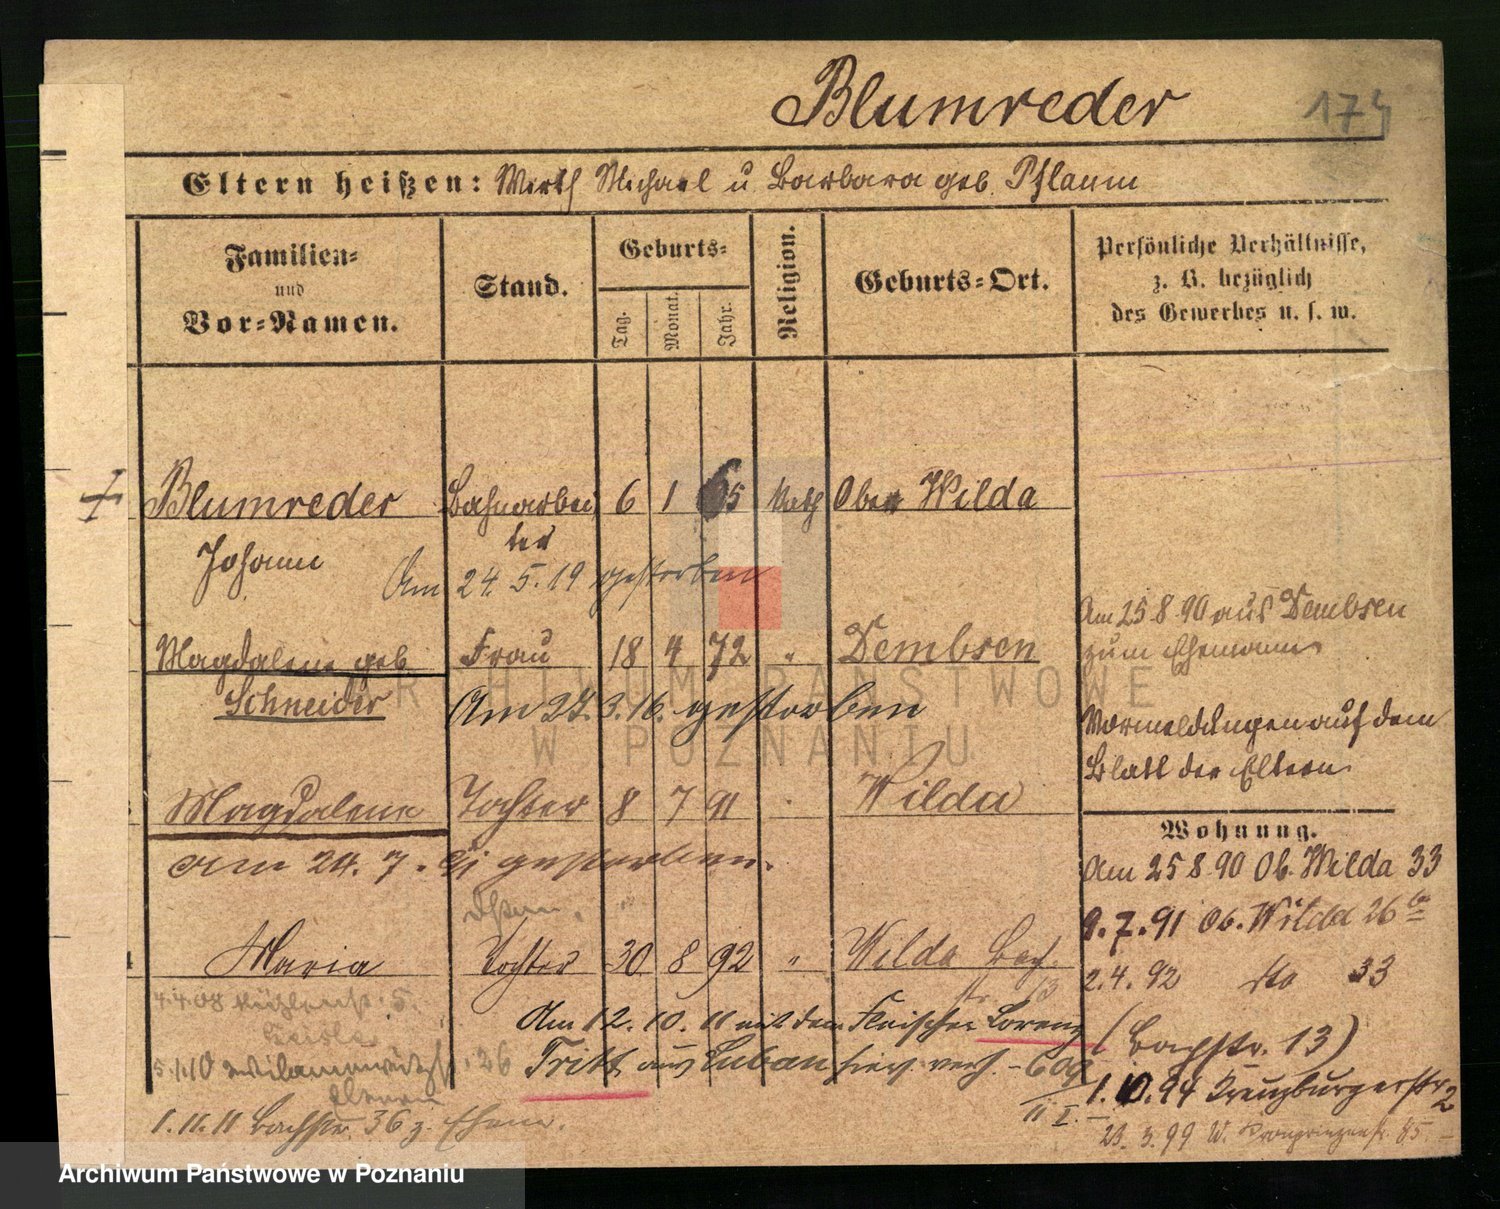 Blumreder 174
Eltern heißen: Wirth Michael u Barbara geb. Pflaum
Familien- und Vor-Namen.
Stand.
Geburts-
Tag. Monat. Jahr.
Religion.
Geburts-Ort.
Persönliche Verhältnisse,
z. B. bezüglich
des Gewerbes u. s. w.
Blumreder Bahnarbei 6 1 65 kath Ober Wilda
ter
Johann
Am 24.5.19 gestorben
Am 25 8 90 aus Dembsen
zum Ehemann
Magdalene geb. Frau 18 4 72 " Dembsen
Schneider
Am 27.3.16. gestorben
Vormeldungen auf dem
Blatt der Eltern
Magdalene Tochter 8 7 91 " Wilda
am 24. 7. 91 gestorben.
Wohnung.
Am 25 8 90 Ob. Wilda 33
9.7.91 Ob. Wilda 26
2.4.92 dto 33
(Bachstr. 13)
1.10.94 Kreuzburgerstr 2
23.3.99 W. Kronprinzenstr. 85.
Maria Tochter 30 8 92 " Wilda Bach
str. 13
4.4.08 5.
Am 12.10.11 mit dem Fleischer Lorenz
Tritt aus Luban hier verh. - 609
11 I.
5.1.10 26
Eltern
1.11.11 Bachstr. 36 z. Ehem.
ARCHIWUM PAŃSTWOWE
W POZNANIU
Archiwum Państwowe w Poznaniu